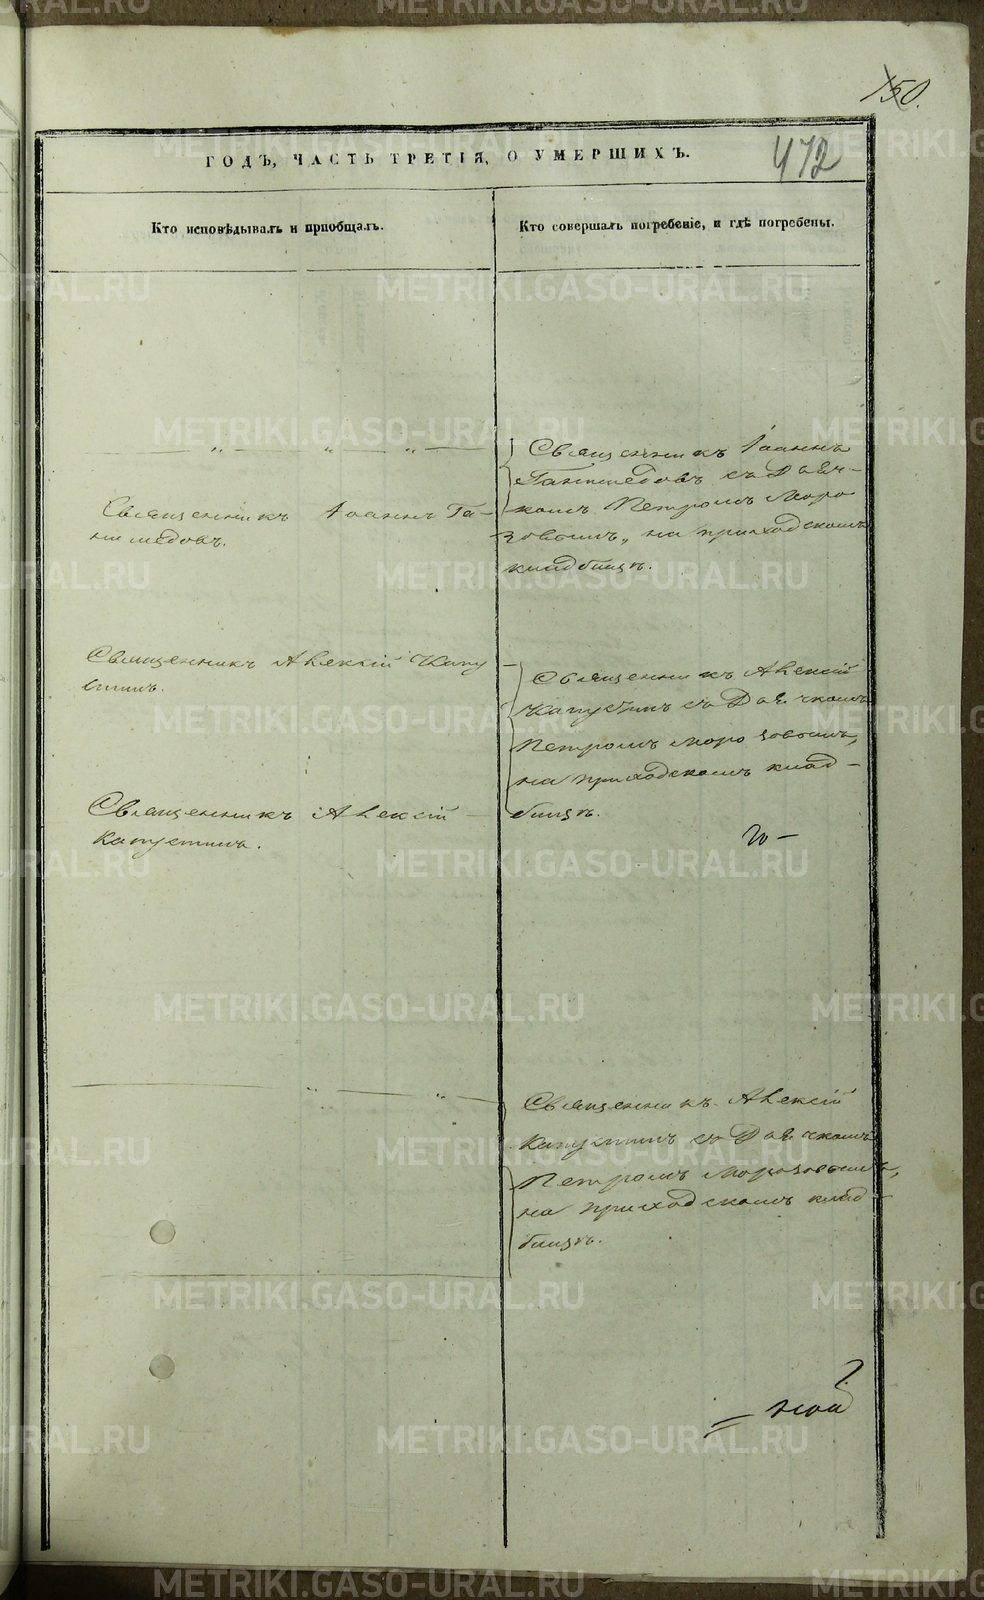 150.
ГОДЪ, ЧАСТЬ ТРЕТІЯ, О УМЕРШИХЪ.
472
Кто исповѣдывалъ и пріобщалъ.
Кто совершалъ погребеніе, и гдѣ погребены.
— „ — „ — „ —
Священникъ Іоаннъ Га-
нимедовъ.
Священникъ Іоаннъ
Ганимедовъ съ Дьяч-
комъ Петромъ Моро
зовымъ, на приходскомъ
кладбищѣ.
Священникъ Алексій Капу
стинъ.
Священникъ Алексій
Капустинъ съ Дьячкомъ
Петромъ Морозовымъ,
на приходскомъ клад-
бищѣ.
Священникъ Алексій
Капустинъ.
— „ — „ —
Священникъ Алексій
Капустинъ съ Дьячкомъ
Петромъ Морозовымъ,
на приходскомъ клад-
бищѣ.
METRIKI.GASO-URAL.RU